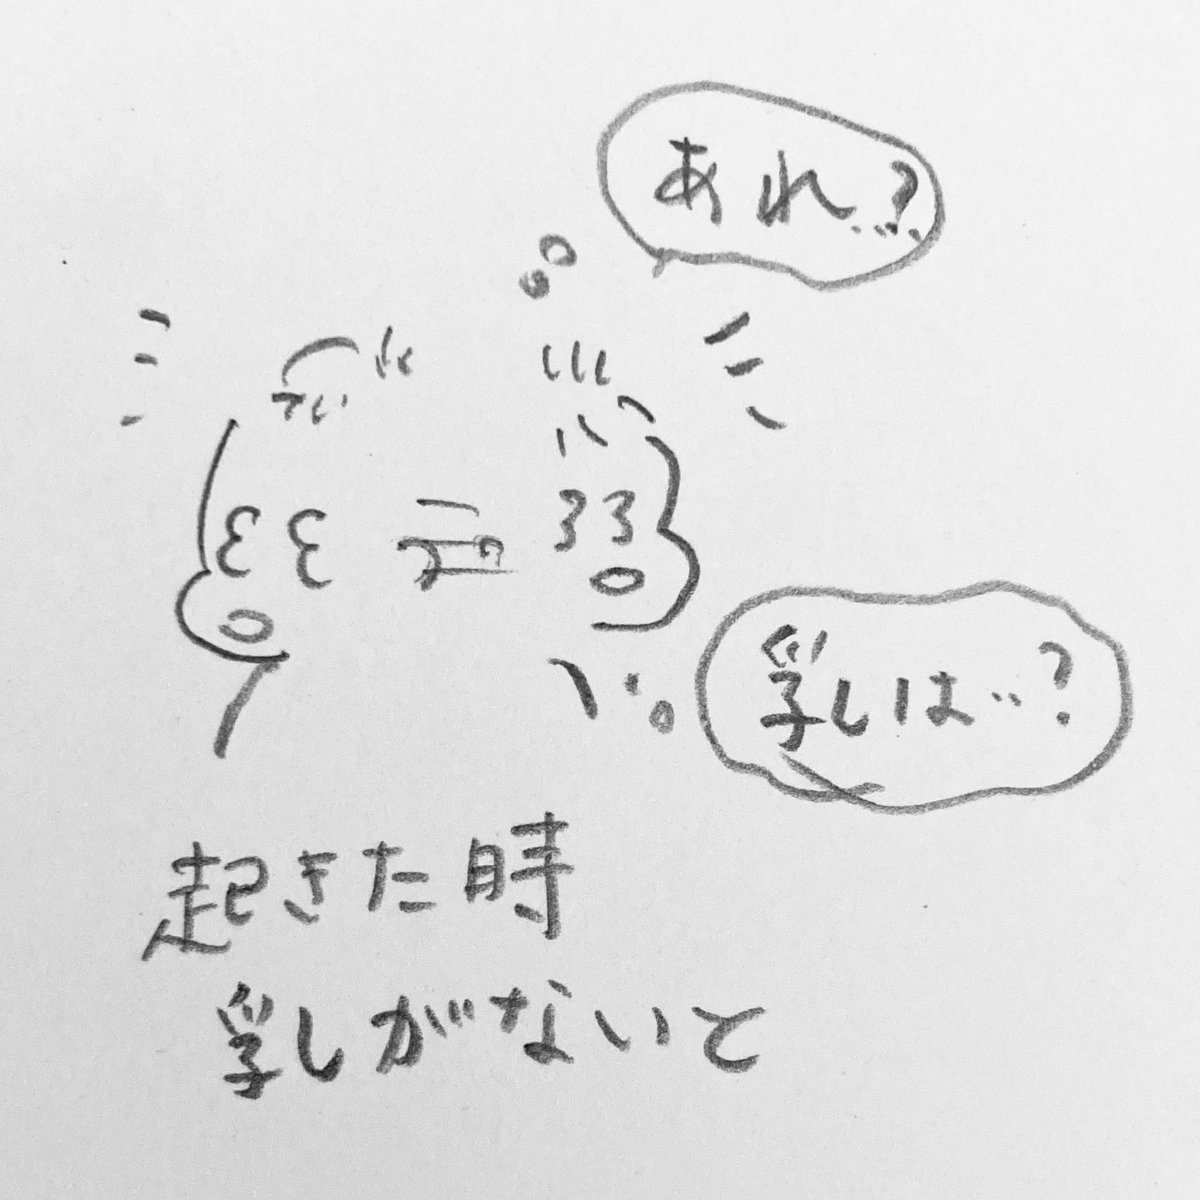 あれ…?
乳は…?
起きた時
乳がないと